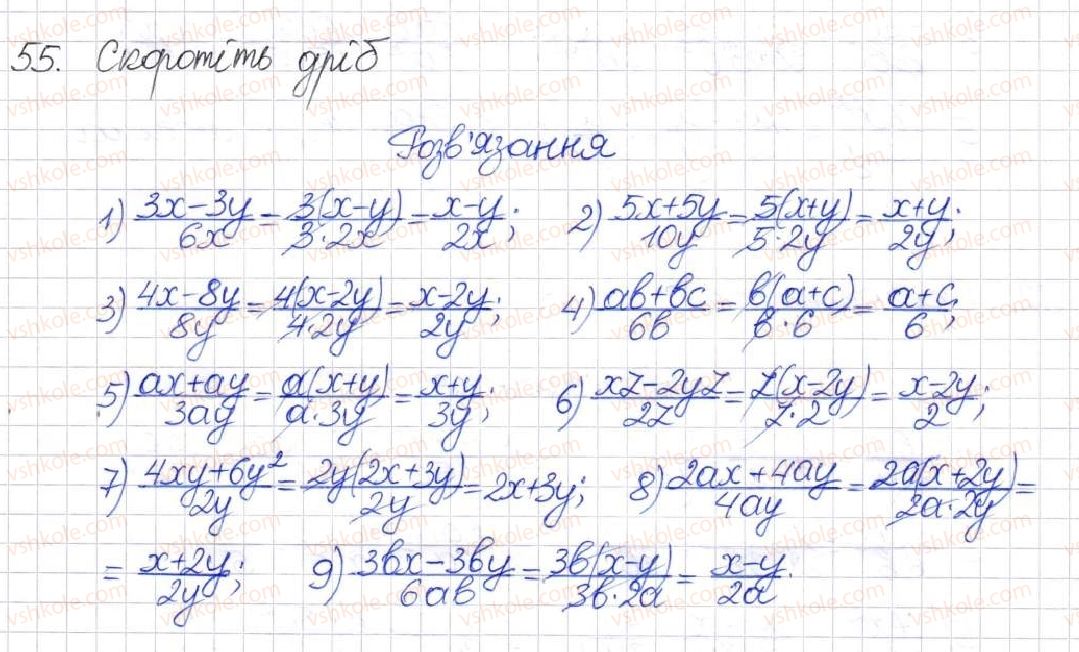 55. Скоротіть дріб
Розв'язання
1) (3x-3y)/(6x) = (3(x-y))/(3·2x) = (x-y)/(2x); 2) (5x+5y)/(10y) = (5(x+y))/(5·2y) = (x+y)/(2y);
3) (4x-8y)/(8y) = (4(x-2y))/(4·2y) = (x-2y)/(2y); 4) (ab+bc)/(6b) = (b(a+c))/(b·6) = (a+c)/6;
5) (ax+ay)/(3ay) = (a(x+y))/(a·3y) = (x+y)/(3y); 6) (xz-2yz)/(2z) = (z(x-2y))/(z·2) = (x-2y)/2;
7) (4xy+6y²)/(2y) = (2y(2x+3y))/(2y) = 2x+3y; 8) (2ax+4ay)/(4ay) = (2a(x+2y))/(2a·2y) =
= (x+2y)/(2y); 9) (3bx-3by)/(6ab) = (3b(x-y))/(3b·2a) = (x-y)/(2a).
vshkole.com